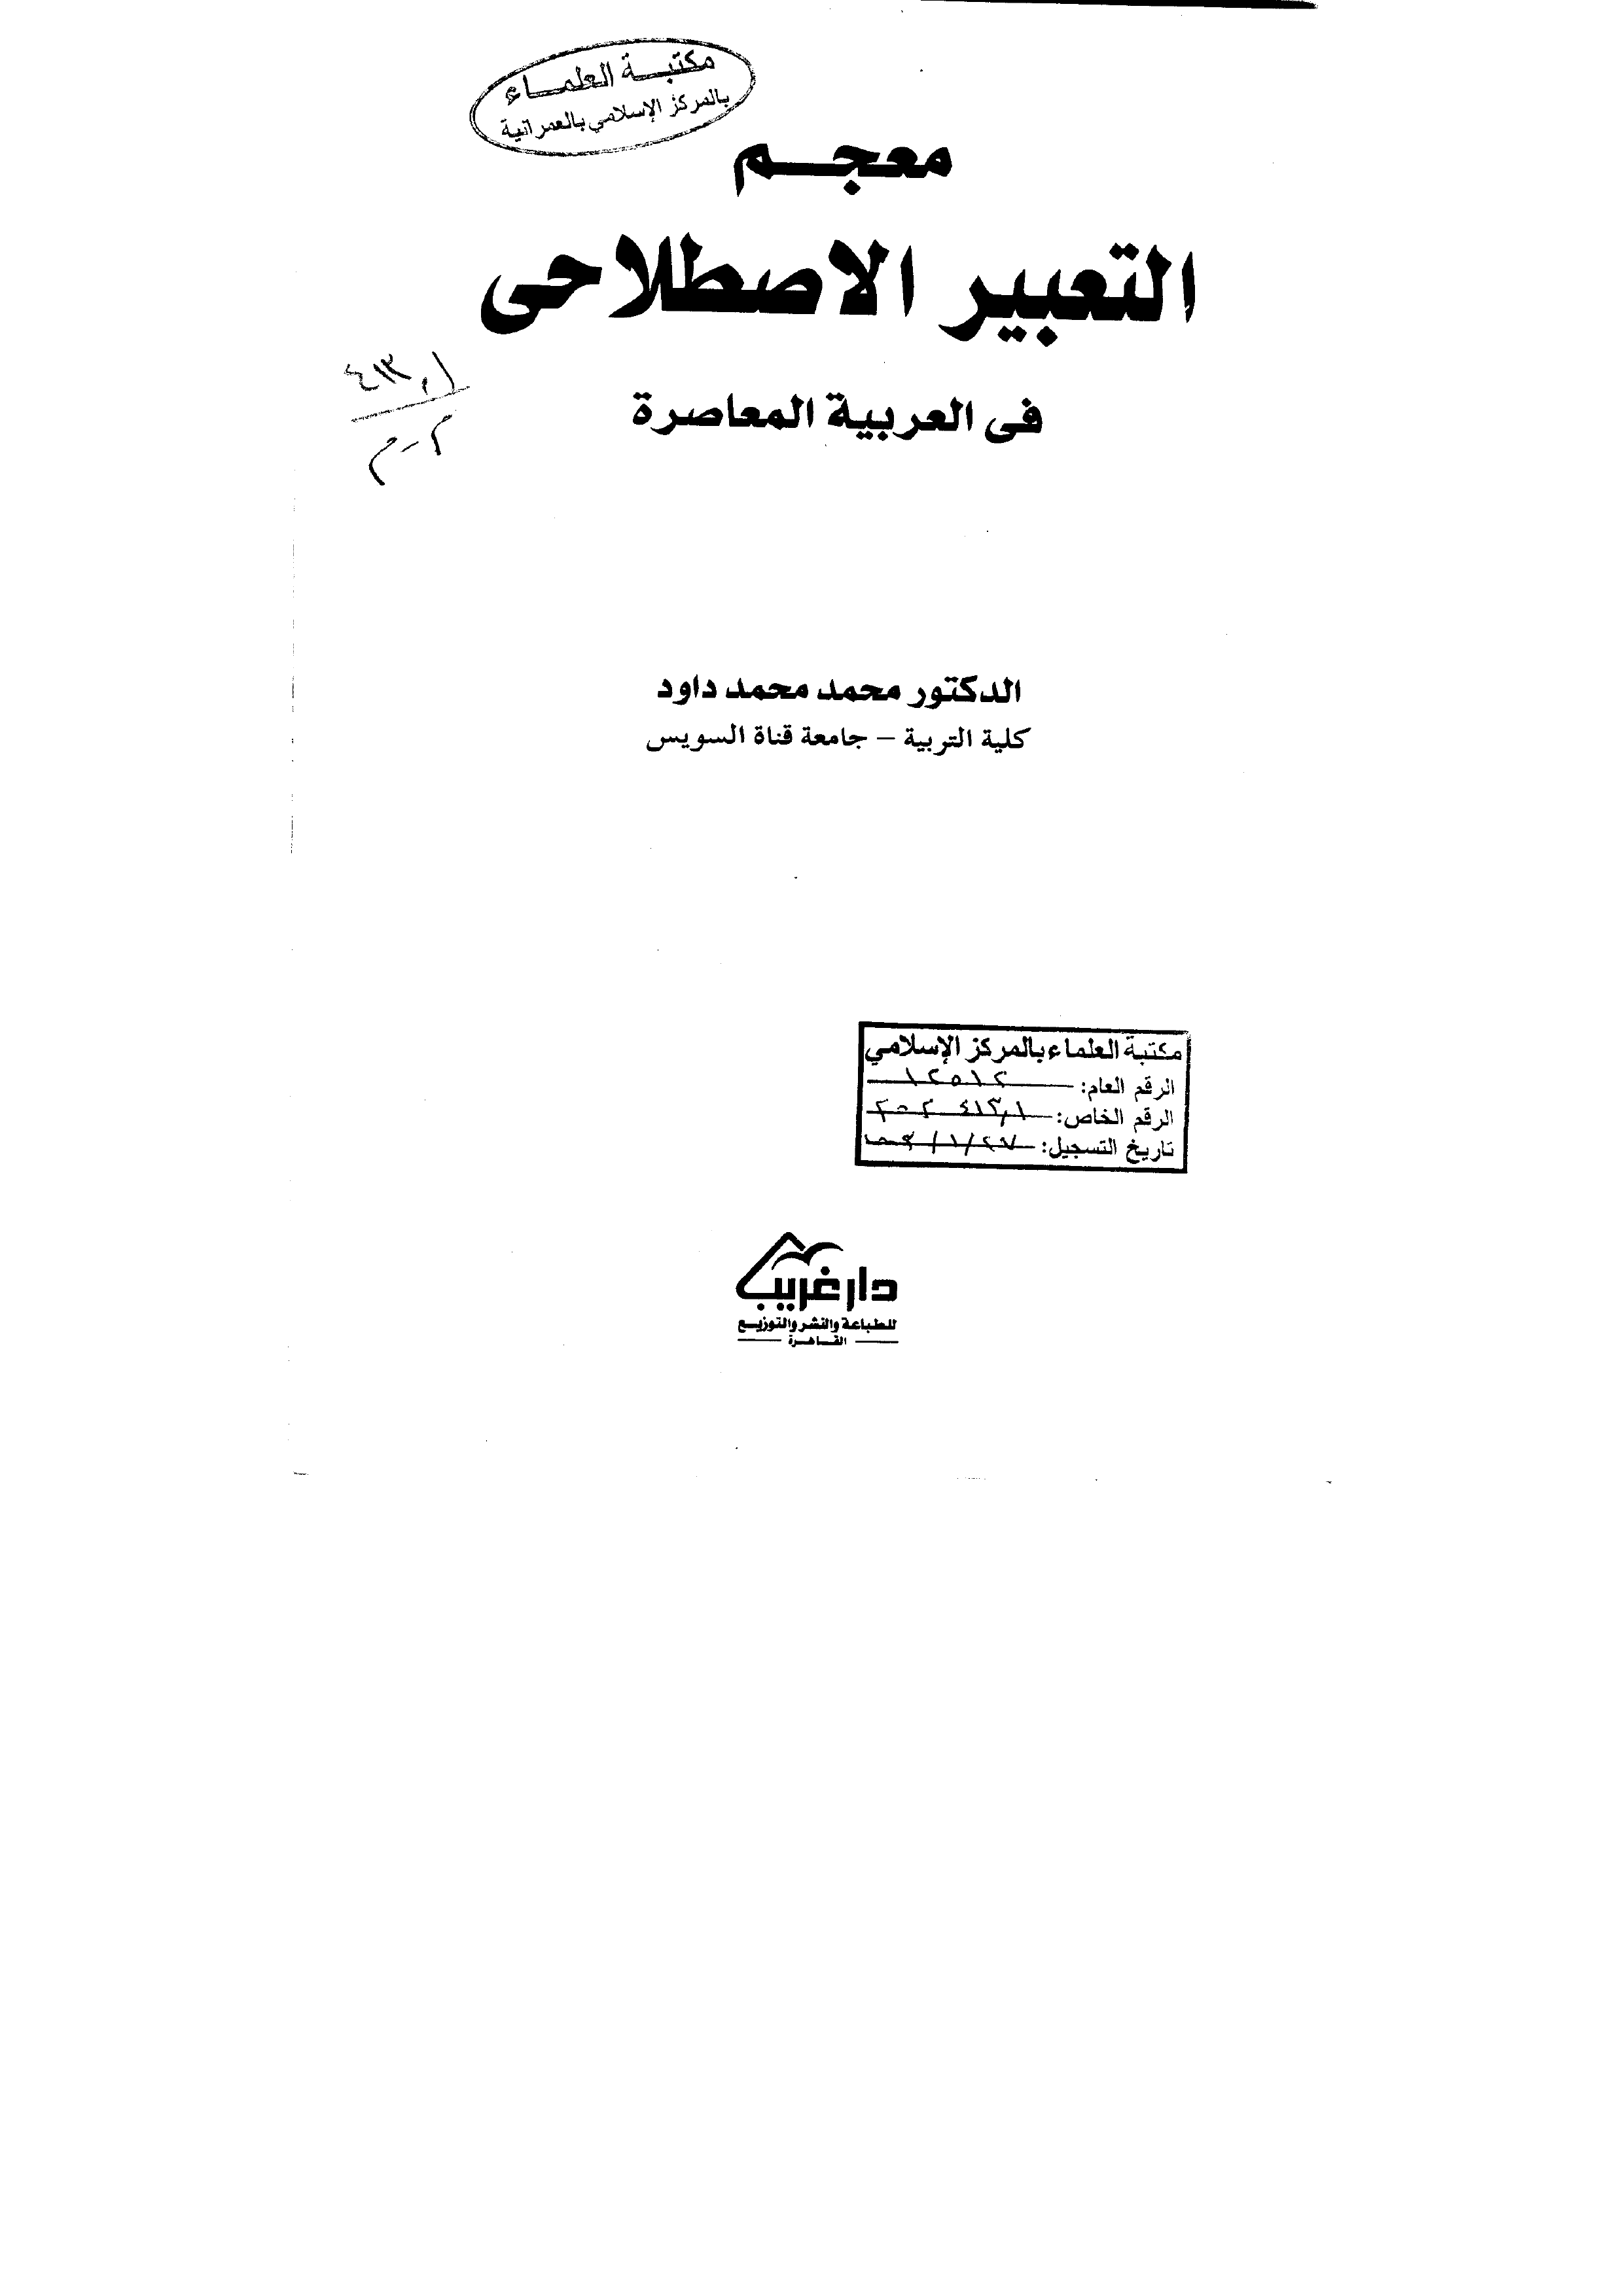 مكتبة العلماء
بالمركز الإسلامي بالعمرانية
معجم
التعبير الاصطلاحى
فى العربية المعاصرة
٤١٣,١
م-٢
الدكتور محمد محمد داود
كلية التربية – جامعة قناة السويس
مكتبة العلماء بالمركز الإسلامي
الرقم العام: ١٢٥١٢
الرقم الخاص: ٤١٣,١
تاريخ التسجيل:
دار غريب
للطباعة والنشر والتوزيع
القاهرة